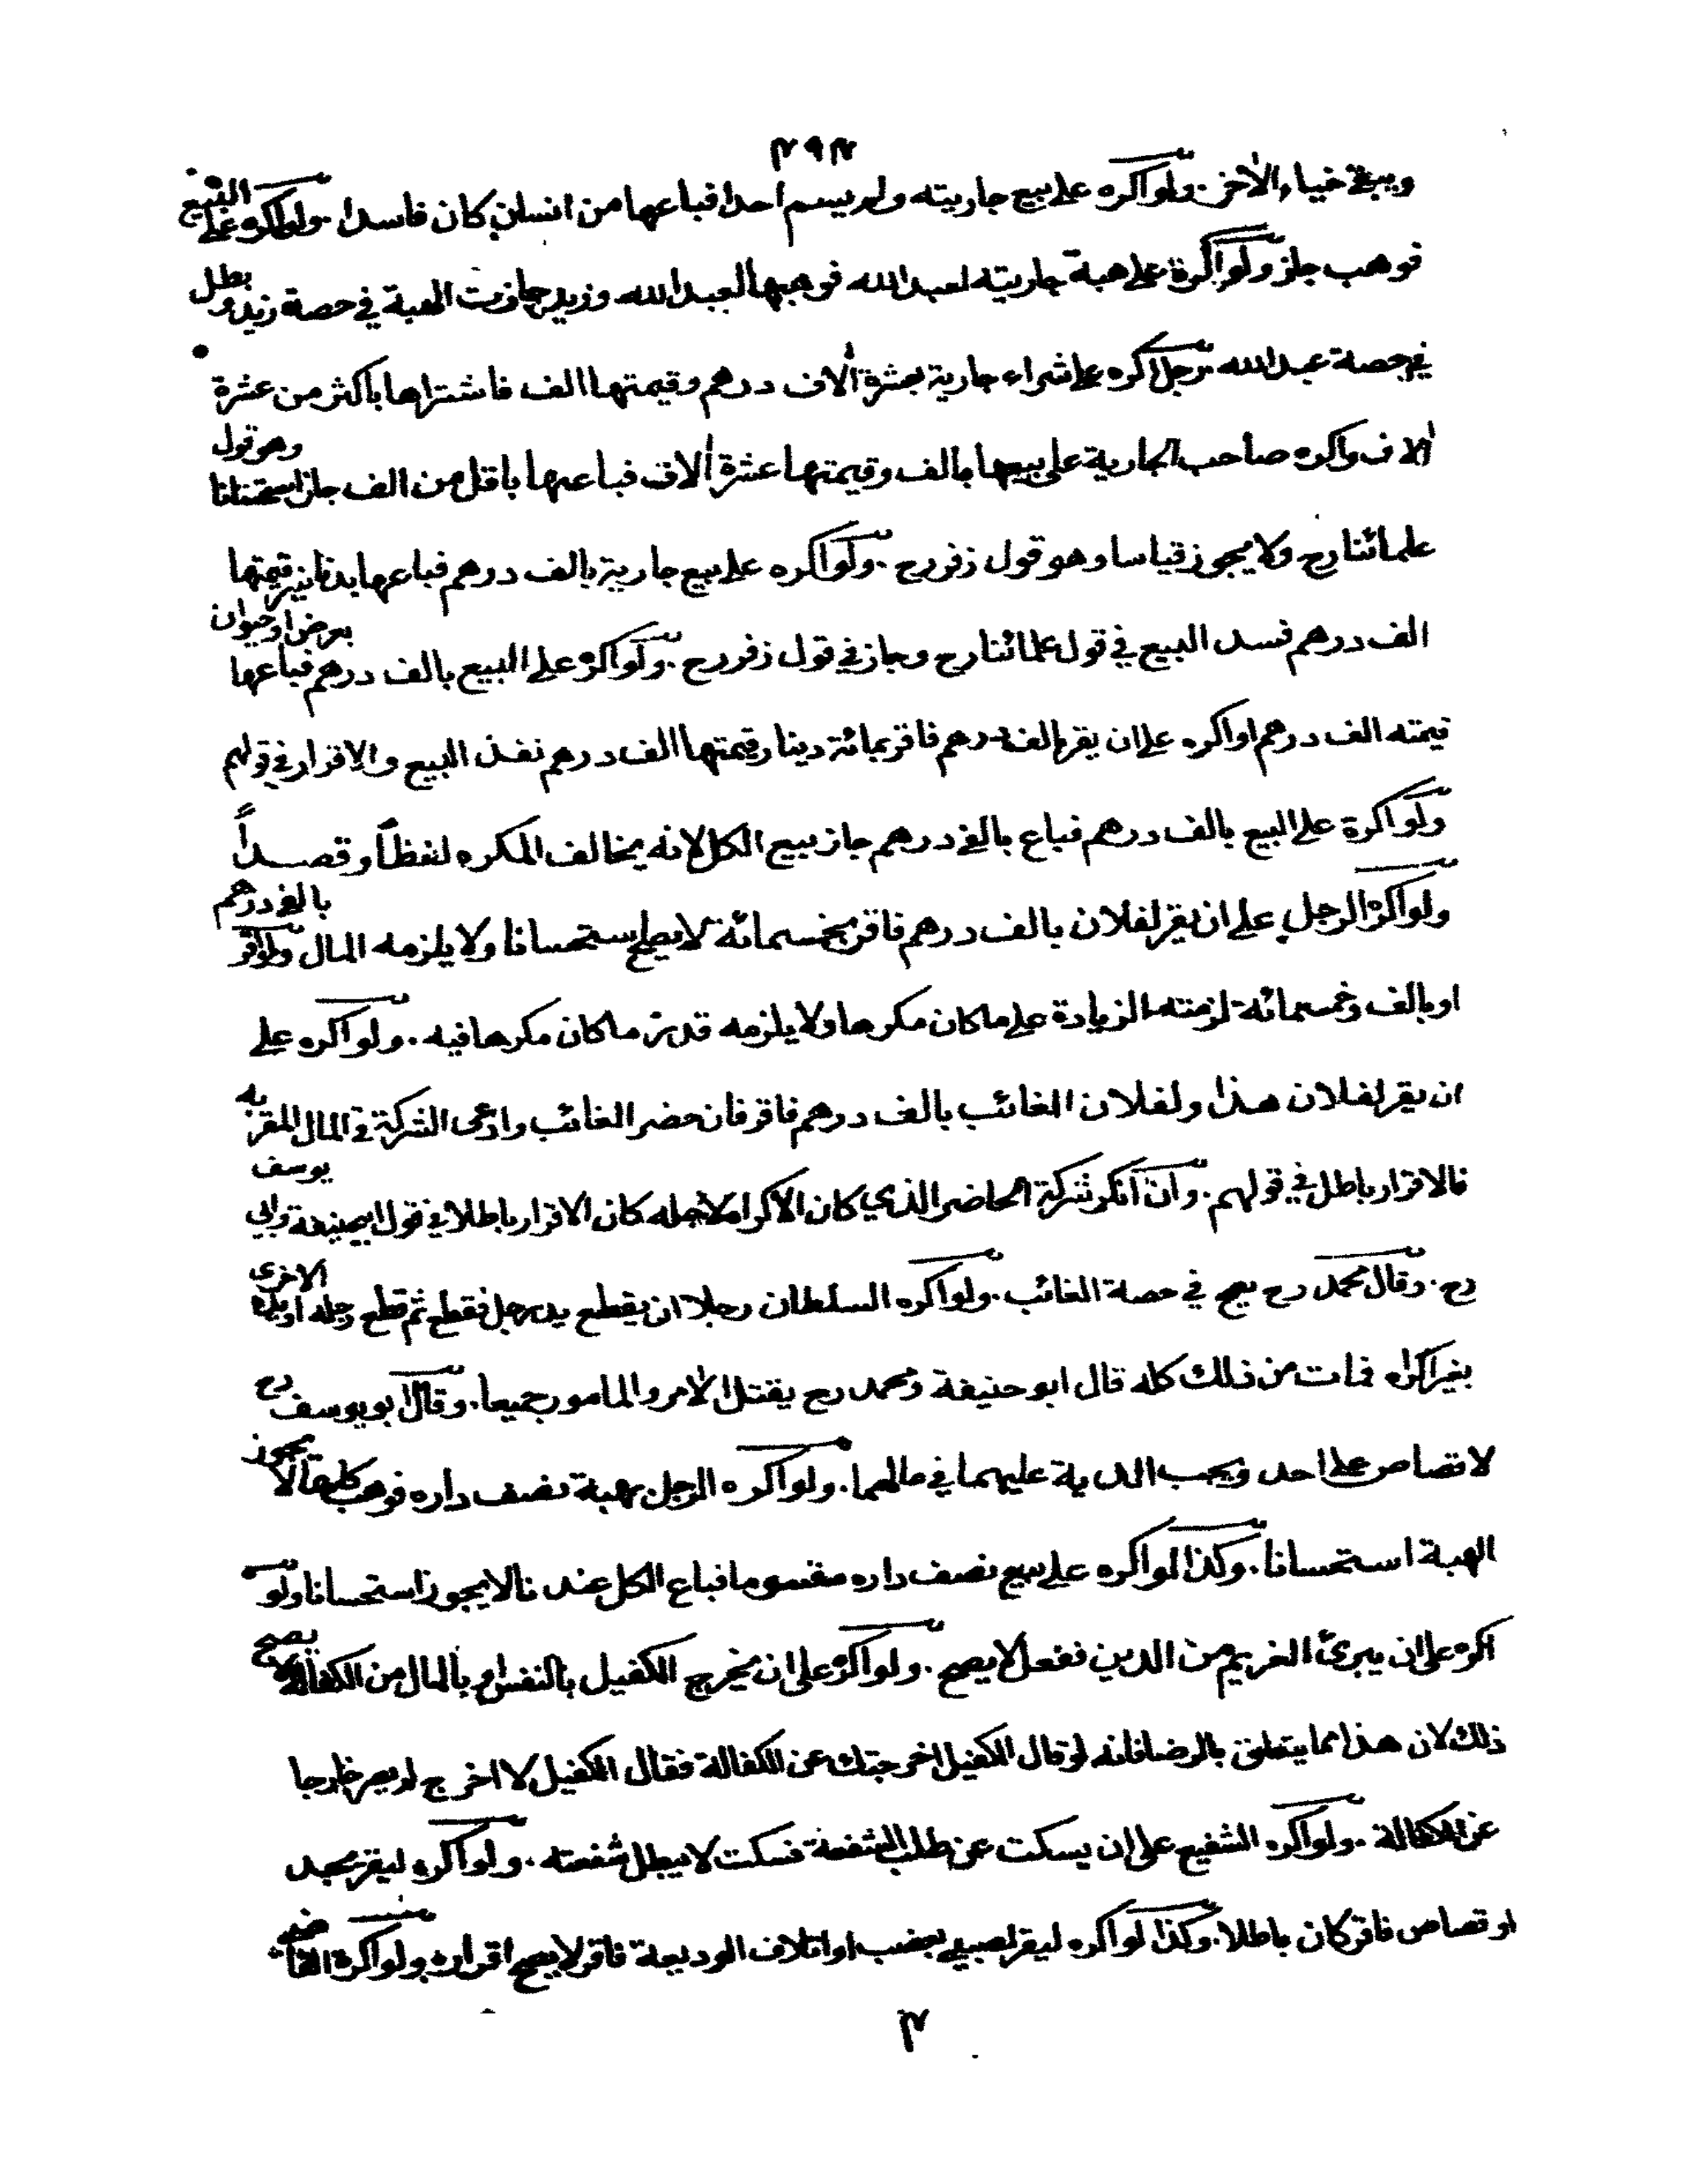 ٤٩٤
ويبقى خياء الاخر . ولو اكره على بيع جاريته ولم يسم احدا فباعها من انسان كان فاسدا . ولو اكره على البيع
فوهب جاز ولو اكره على هبة جاريته لعبد الله فوهبها لعبد الله وزيد جازت الهبة في حصة زيد وبطل
في حصة عبد الله . رجل اكره على شراء جارية بعشرة آلاف درهم وقيمتها الف فاشتراها باكثر من عشرة
آلاف واكره صاحب الجارية على بيعها بالف وقيمتها عشرة آلاف فباعها باقل من الف جاز استحسانا وهو قول
علمائنا رح ولا يجوز قياسا وهو قول زفر رح . ولو اكره على بيع جارية بالف درهم فباعها بدنانير قيمتها
الف درهم فسد البيع في قول علمائنا رح وجاز في قول زفر رح . ولو اكره على البيع بالف درهم فباعها بعرض او حيوان
قيمته الف درهم او اكره على ان يقر بالف درهم فاقر بمائة دينار قيمتها الف درهم نفذ البيع والاقرار في قولهم
ولو اكره على البيع بالف درهم فباع بالفي درهم جاز بيع الكل لانه يخالف المكره لفظاً وقصداً
ولو اكره الرجل على ان يقر لفلان بالف درهم فاقر بخمسمائة لا يصلح استحسانا ولا يلزمه المال ولو اقر بالفي درهم
او بالف وخمسمائة لزمته الزيادة على ما كان مكرها ولا يلزمه قدر ما كان مكرها فيه . ولو اكره على
ان يقر لفلان هذا ولفلان الغائب بالف درهم فاقر فان حضر الغائب وادعى الشركة في المال المقر به
فالاقرار باطل في قولهم . وان انكر شركة الحاضر الذي كان الاكراه لاجله كان الاقرار باطلا في قول ابيحنيفة وابي يوسف
رح . وقال محمد رح يصح في حصة الغائب . ولو اكره السلطان رجلا ان يقطع يد رجل فقطع ثم قطع رجله او يده الاخرى
بغير اكراه فمات من ذلك كله قال ابو حنيفة ومحمد رح يقتل الامر والمامور جميعا . وقال ابو يوسف رح
لا قصاص على احد ويجب الدية عليهما في مالهما . ولو اكره الرجل بهبة نصف داره فوهب كلها قال لا يجوز
الهبة استحسانا . وكذا لو اكره على بيع نصف داره مقسوما فباع الكل عندنا لا يجوز استحسانا ولو
اكره على ان يبرئ الغريم من الدين ففعل لا يصح . ولو اكره على ان يخرج الكفيل بالنفس او بالمال من الكفالة لا يصح
ذلك لان هذا مما يتعلق بالرضا فانه لو قال الكفيل اخرجتك عن الكفالة فقال الكفيل لا اخرج لم يصر خارجا
عن الكفالة . ولو اكره الشفيع على ان يسكت عن طلب الشفعة فسكت لا يبطل شفعته . ولو اكره ليقر بحد
او قصاص فاقر كان باطلا . وكذا لو اكره ليقر لصبي بغصب او اتلاف الوديعة فاقر لا يصح اقراره ولو اكره القاضي
٤